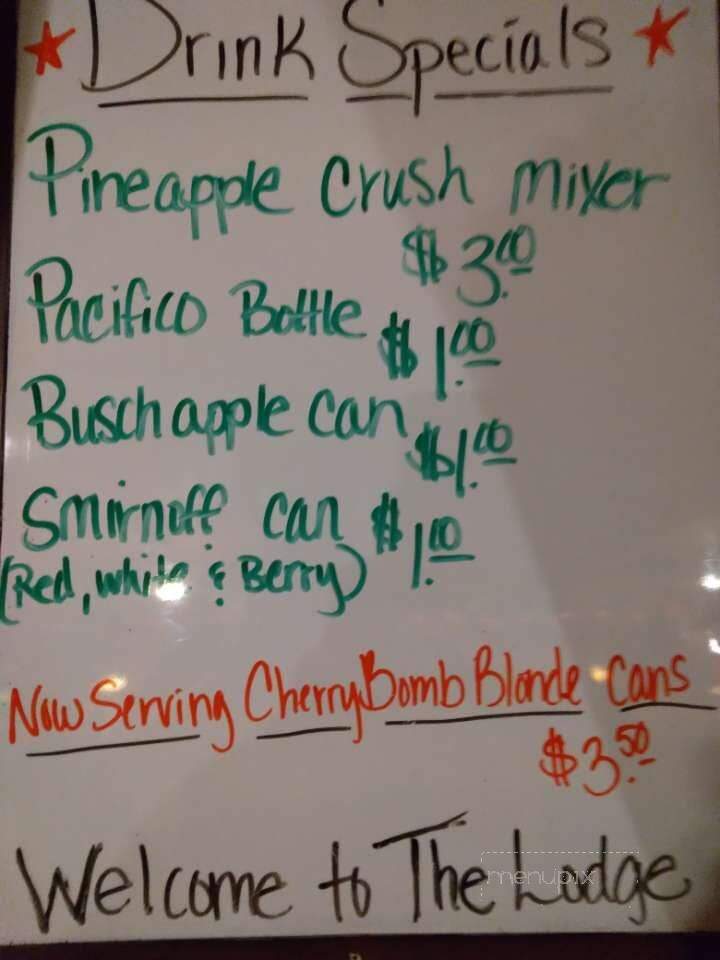 Drink Specials
Pineapple Crush mixer
$3.00
Pacifico Bottle
$1.00
Busch apple can
$1.00
Smirnoff can $1.00
(Red, white & Berry)
Now Serving Cherry Bomb Blonde Cans
$3.50
Welcome to The Lodge
menupix